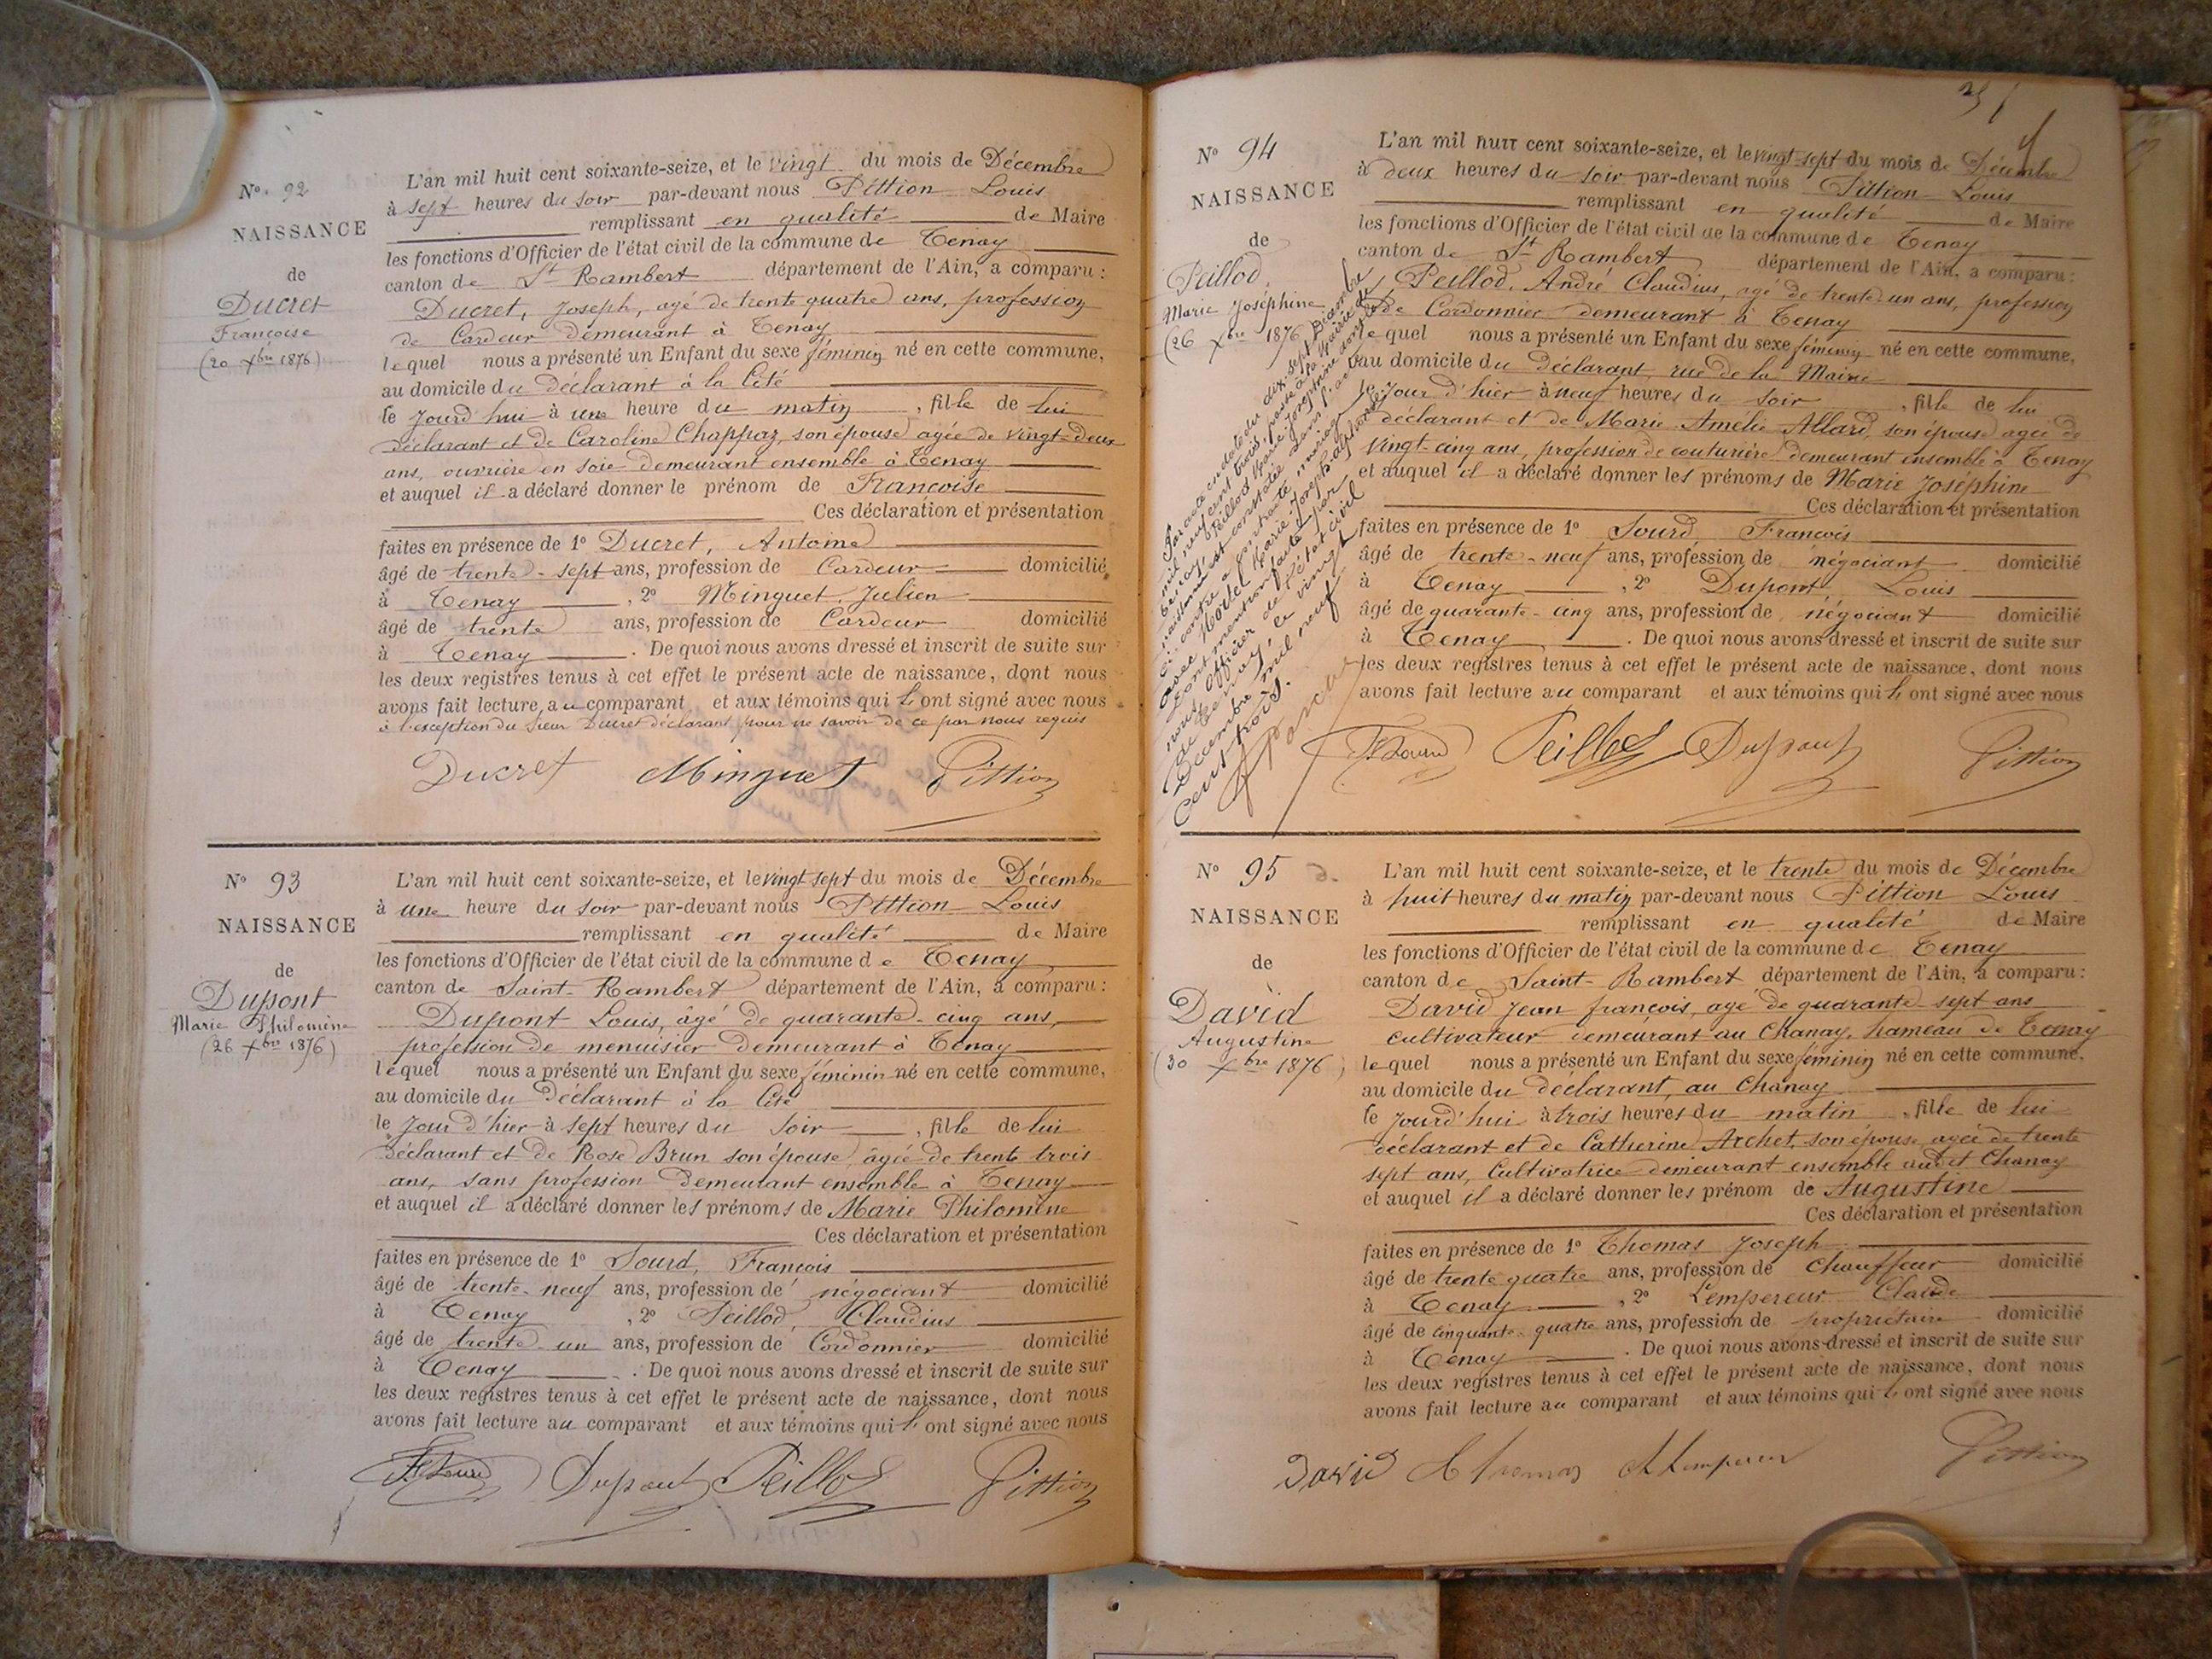 N° 92
NAISSANCE
de
Ducret
Françoise
(20 Xbre 1876)
L'an mil huit cent soixante-seize, et le vingt du mois de Décembre
à sept heures du soir par-devant nous Pittion Louis
remplissant en qualité de Maire
les fonctions d'Officier de l'état civil de la commune de Tenay
canton de St Rambert département de l'Ain, a comparu :
Ducret, Joseph, agé de trente quatre ans, profession
de Cardeur demeurant à Tenay
lequel nous a présenté un Enfant du sexe féminin né en cette commune,
au domicile du déclarant à la Cité
le jourd'hui à une heure du matin, fille de lui
déclarant et de Caroline Chappaz, son épouse agée de vingt-deux
ans, ouvrière en soie demeurant ensemble à Tenay
et auquel il a déclaré donner le prénom de Françoise
Ces déclaration et présentation
faites en présence de 1° Ducret, Antoine
âgé de trente-sept ans, profession de Cardeur domicilié
à Tenay, 2° Minguet, Julien
âgé de trente ans, profession de Cardeur domicilié
à Tenay. De quoi nous avons dressé et inscrit de suite sur
les deux registres tenus à cet effet le présent acte de naissance, dont nous
avons fait lecture au comparant et aux témoins qui l'ont signé avec nous
à l'exception du sieur Ducret déclarant pour ne savoir de ce par nous requis
Ducret Minguet Pittion
N° 93
NAISSANCE
de
Dupont
Marie Philomène
(26 Xbre 1876)
L'an mil huit cent soixante-seize, et le vingt sept du mois de Décembre
à une heure du soir par-devant nous Pittion Louis
remplissant en qualité de Maire
les fonctions d'Officier de l'état civil de la commune de Tenay
canton de Saint-Rambert département de l'Ain, a comparu :
Dupont Louis, âgé de quarante-cinq ans,
profession de menuisier demeurant à Tenay
lequel nous a présenté un Enfant du sexe féminin né en cette commune,
au domicile du déclarant à la Cité
le jour d'hier à sept heures du soir, fille de lui
déclarant et de Rose Brun son épouse, âgée de trente trois
ans, sans profession demeurant ensemble à Tenay
et auquel il a déclaré donner les prénoms de Marie Philomène
Ces déclaration et présentation
faites en présence de 1° Sourd, François
âgé de trente-neuf ans, profession de négociant domicilié
à Tenay, 2° Peillod, Claudius
âgé de trente-un ans, profession de Cordonnier domicilié
à Tenay. De quoi nous avons dressé et inscrit de suite sur
les deux registres tenus à cet effet le présent acte de naissance, dont nous
avons fait lecture au comparant et aux témoins qui l'ont signé avec nous
F. Sourd Dupont Peillod Pittion
N° 94
NAISSANCE
de
Peillod
Marie Joséphine
(26 Xbre 1876)
Par acte en date du dix sept Décembre
mil neuf cent trois, passé à la Mairie de
Tenay, Peillod Marie Joséphine dont la
naissance est constatée dans l'acte
ci-contre a contracté mariage
avec Marie Joseph
Dont mention faite par
nous, Officier de l'état civil
de Tenay, ce vingt
Décembre mil neuf
cent trois.
L'an mil huit cent soixante-seize, et le vingt-sept du mois de Décembre
à deux heures du soir par-devant nous Pittion Louis
remplissant en qualité de Maire
les fonctions d'Officier de l'état civil de la commune de Tenay
canton de St Rambert département de l'Ain, a comparu :
Peillod, André Claudius, agé de trente-un ans, profession
de Cordonnier demeurant à Tenay
lequel nous a présenté un Enfant du sexe féminin né en cette commune,
au domicile du déclarant, rue de la Mairie
le jour d'hier à neuf heures du soir, fille de lui
déclarant et de Marie Amélie Allard, son épouse agée de
vingt-cinq ans, profession de couturière demeurant ensemble à Tenay
et auquel il a déclaré donner les prénoms de Marie Joséphine
Ces déclaration et présentation
faites en présence de 1° Sourd, François
âgé de trente-neuf ans, profession de négociant domicilié
à Tenay, 2° Dupont, Louis
âgé de quarante-cinq ans, profession de négociant domicilié
à Tenay. De quoi nous avons dressé et inscrit de suite sur
les deux registres tenus à cet effet le présent acte de naissance, dont nous
avons fait lecture au comparant et aux témoins qui l'ont signé avec nous
F. Sourd Peillod Dupont Pittion
N° 95
NAISSANCE
de
David
Augustine
(30 Xbre 1876)
L'an mil huit cent soixante-seize, et le trente du mois de Décembre
à huit heures du matin par-devant nous Pittion Louis
remplissant en qualité de Maire
les fonctions d'Officier de l'état civil de la commune de Tenay
canton de Saint-Rambert département de l'Ain, a comparu :
David Jean françois, agé de quarante-sept ans
cultivateur demeurant au Chanay, hameau de Tenay
lequel nous a présenté un Enfant du sexe féminin né en cette commune,
au domicile du déclarant, au Chanay
le jourd'hui à trois heures du matin, fille de lui
déclarant et de Catherine Archet, son épouse, agée de trente
sept ans, Cultivatrice demeurant ensemble audit Chanay
et auquel il a déclaré donner les prénom de Augustine
Ces déclaration et présentation
faites en présence de 1° Thomas Joseph
âgé de trente quatre ans, profession de Chauffeur domicilié
à Tenay, 2° Lempereur Claude
âgé de cinquante-quatre ans, profession de propriétaire domicilié
à Tenay. De quoi nous avons dressé et inscrit de suite sur
les deux registres tenus à cet effet le présent acte de naissance, dont nous
avons fait lecture au comparant et aux témoins qui l'ont signé avec nous
David Thomas Lempereur Pittion